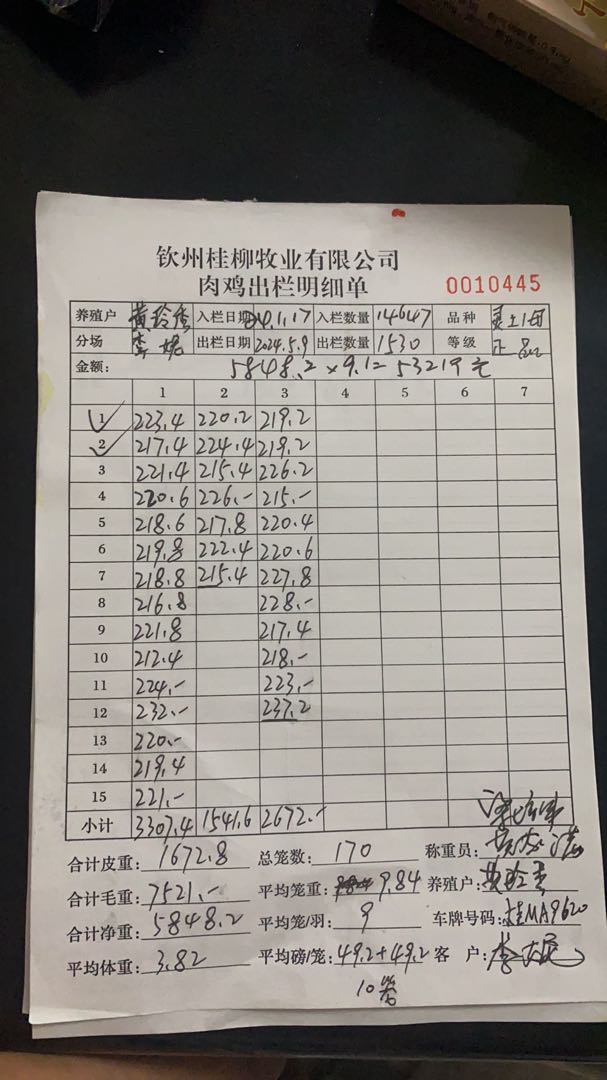 钦州桂柳牧业有限公司
肉鸡出栏明细单 0010445
养殖户 黄玲秀 入栏日期 入栏数量 14647 品种
分场 李 出栏日期 2024.5.9 出栏数量 1530 等级 正品
金额: 5848.2×9.1= 53219元
1 2 3 4 5 6 7
1 223.4 220.2 219.2
2 217.4 224.4 219.2
3 221.4 215.4 226.2
4 220.6 226.- 215.-
5 218.6 217.8 220.4
6 219.8 222.4 220.6
7 218.8 215.4 227.8
8 216.8 228.-
9 221.8 217.4
10 212.4 218.-
11 224.- 223.-
12 232.- 237.2
13 220.-
14 219.4
15 221.-
小计 3307.4 1541.6 2672.-
合计皮重: 1672.8 总笼数: 170 称重员:
合计毛重: 7521.- 平均笼重: 9.84 养殖户: 黄玲秀
合计净重: 5848.2 平均笼/羽: 9 车牌号码: 桂MA9620
平均体重: 3.82 平均磅/笼: 49.2+49.2 客 户: 李